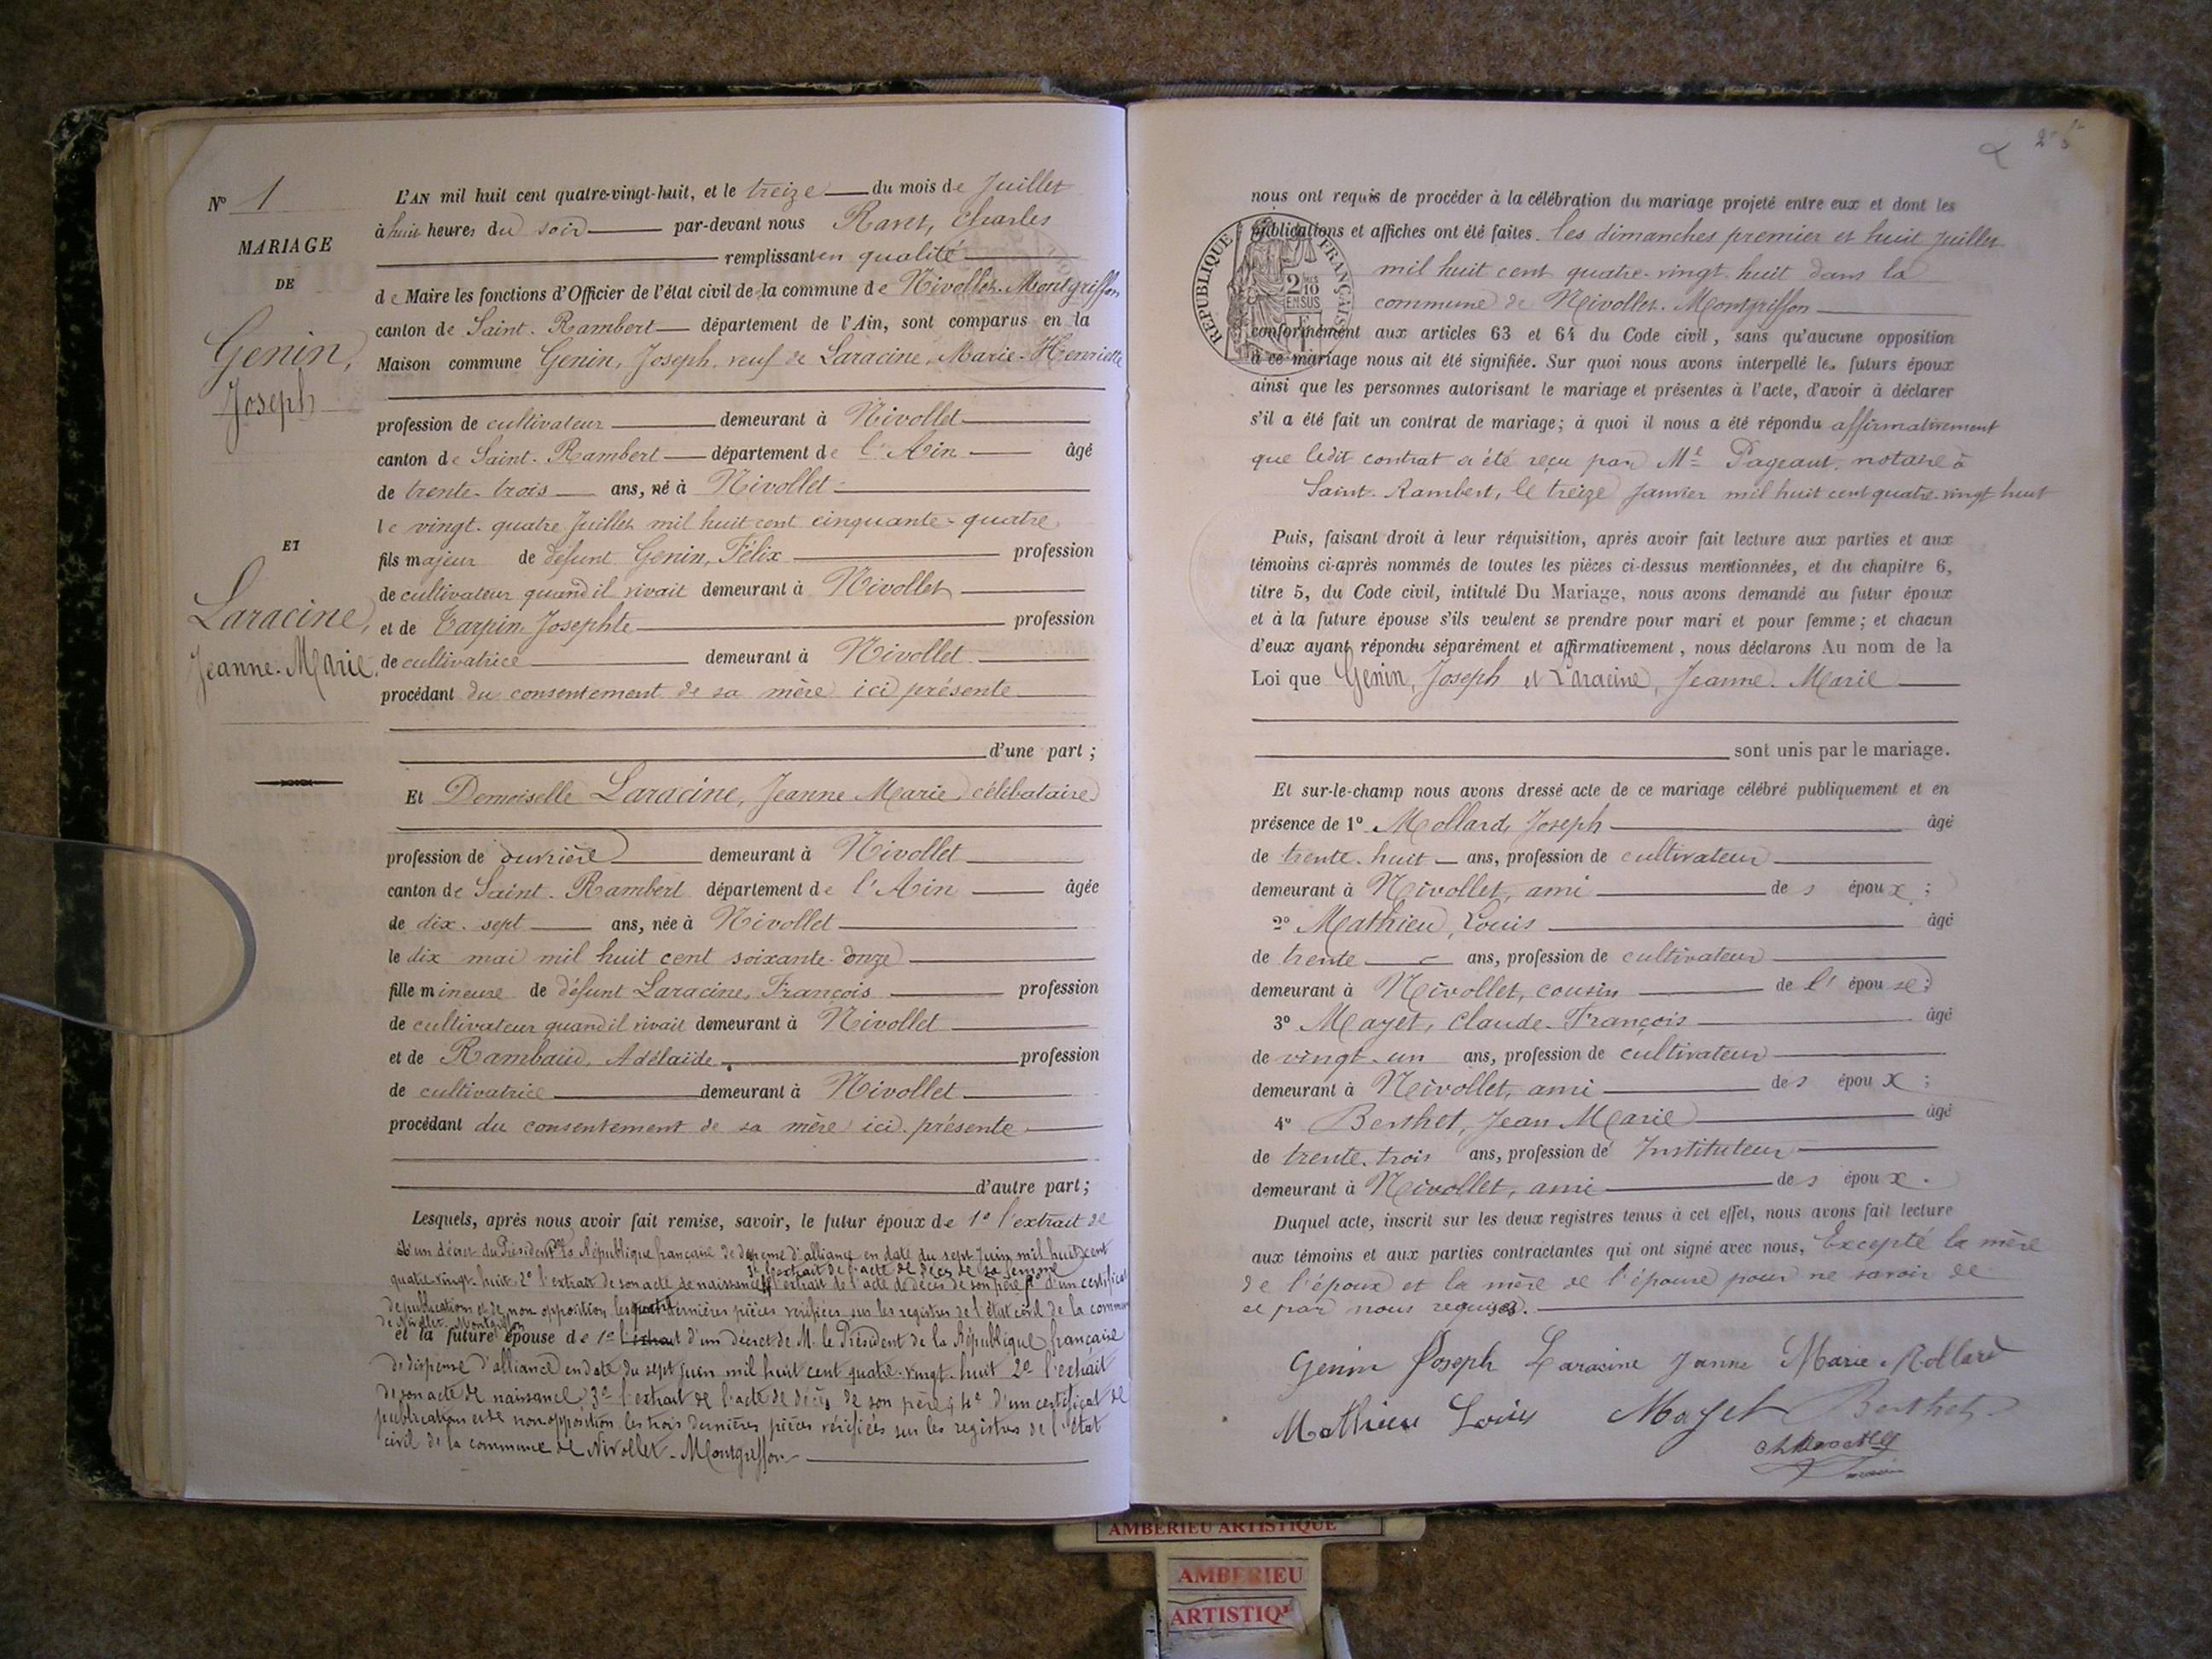 N° 1
MARIAGE
DE
Genin,
Joseph
ET
Laracine,
Jeanne-Marie.
L'AN mil huit cent quatre-vingt-huit, et le treize du mois de Juillet
à huit heures du soir par-devant nous Ravet, Charles
remplissant en qualité
de Maire les fonctions d'Officier de l'état civil de la commune de Nivollet-Montgriffon
canton de Saint-Rambert département de l'Ain, sont comparus en la
Maison commune Genin, Joseph, veuf de Laracine, Marie-Henriette
profession de cultivateur demeurant à Nivollet
canton de Saint-Rambert département de l'Ain âgé
de trente-trois ans, né à Nivollet
le vingt-quatre Juillet mil huit cent cinquante-quatre
fils majeur de défunt Genin, Félix profession
de cultivateur quand il vivait demeurant à Nivollet
et de Tarpin Josephte profession
de cultivatrice demeurant à Nivollet
procédant du consentement de sa mère ici présente
d'une part ;
Et Demoiselle Laracine, Jeanne Marie, célibataire
profession de ouvrière demeurant à Nivollet
canton de Saint-Rambert département de l'Ain âgée
de dix-sept ans, née à Nivollet
le dix mai mil huit cent soixante-onze
fille mineure de défunt Laracine, François profession
de cultivateur quand il vivait demeurant à Nivollet
et de Rambaud, Adélaïde profession
de cultivatrice demeurant à Nivollet
procédant du consentement de sa mère ici présente
d'autre part ;
Lesquels, après nous avoir fait remise, savoir, le futur époux de 1° l'extrait de
d'un décret du Président de la République française de dispense d'alliance en date du sept Juin mil huit cent
3° l'extrait de l'acte de décès de sa femme
quatre-vingt-huit 2° l'extrait de son acte de naissance l'extrait de l'acte de décès de son père d'un certificat
de publications et de non opposition les quatre dernières pièces vérifiées sur les registres de l'état civil de la commune
de Nivollet-Montgriffon
et la future épouse de 1° l'extrait d'un décret de M. le Président de la République française
de dispense d'alliance en date du sept juin mil huit cent quatre-vingt-huit 2° l'extrait
de son acte de naissance 3° l'extrait de l'acte de décès de son père 4° d'un certificat de
publications et de non opposition les trois dernières pièces vérifiées sur les registres de l'état
civil de la commune de Nivollet-Montgriffon
nous ont requis de procéder à la célébration du mariage projeté entre eux et dont les
publications et affiches ont été faites les dimanches premier et huit juillet
mil huit cent quatre-vingt-huit dans la
commune de Nivollet-Montgriffon
RÉPUBLIQUE FRANÇAISE
2/10
EN SUS
conformément aux articles 63 et 64 du Code civil, sans qu'aucune opposition
à ce mariage nous ait été signifiée. Sur quoi nous avons interpellé les futurs époux
ainsi que les personnes autorisant le mariage et présentes à l'acte, d'avoir à déclarer
s'il a été fait un contrat de mariage ; à quoi il nous a été répondu affirmativement
que ledit contrat a été reçu par Me Pageaut, notaire à
Saint-Rambert, le treize janvier mil huit cent quatre-vingt huit
Puis, faisant droit à leur réquisition, après avoir fait lecture aux parties et aux
témoins ci-après nommés de toutes les pièces ci-dessus mentionnées, et du chapitre 6,
titre 5, du Code civil, intitulé Du Mariage, nous avons demandé au futur époux
et à la future épouse s'ils veulent se prendre pour mari et pour femme ; et chacun
d'eux ayant répondu séparément et affirmativement, nous déclarons Au nom de la
Loi que Genin, Joseph et Laracine, Jeanne-Marie
sont unis par le mariage.
Et sur-le-champ nous avons dressé acte de ce mariage célébré publiquement et en
présence de 1° Mollard, Joseph âgé
de trente-huit ans, profession de cultivateur
demeurant à Nivollet, ami des époux ;
2° Mathieu, Louis âgé
de trente ans, profession de cultivateur
demeurant à Nivollet, cousin de l'épouse ;
3° Mayet, Claude-François âgé
de vingt-un ans, profession de cultivateur
demeurant à Nivollet, ami des époux ;
4° Berthet, Jean Marie âgé
de trente-trois ans, profession de Instituteur
demeurant à Nivollet, ami des époux.
Duquel acte, inscrit sur les deux registres tenus à cet effet, nous avons fait lecture
aux témoins et aux parties contractantes qui ont signé avec nous, Excepté la mère
de l'époux et la mère de l'épouse pour ne savoir de
ce par nous requises.
Genin Joseph Laracine Janne Marie Mollard
Mathieu Louis Mayet Berthet
AMBERIEU ARTISTIQUE
AMBERIEU
ARTISTIQ